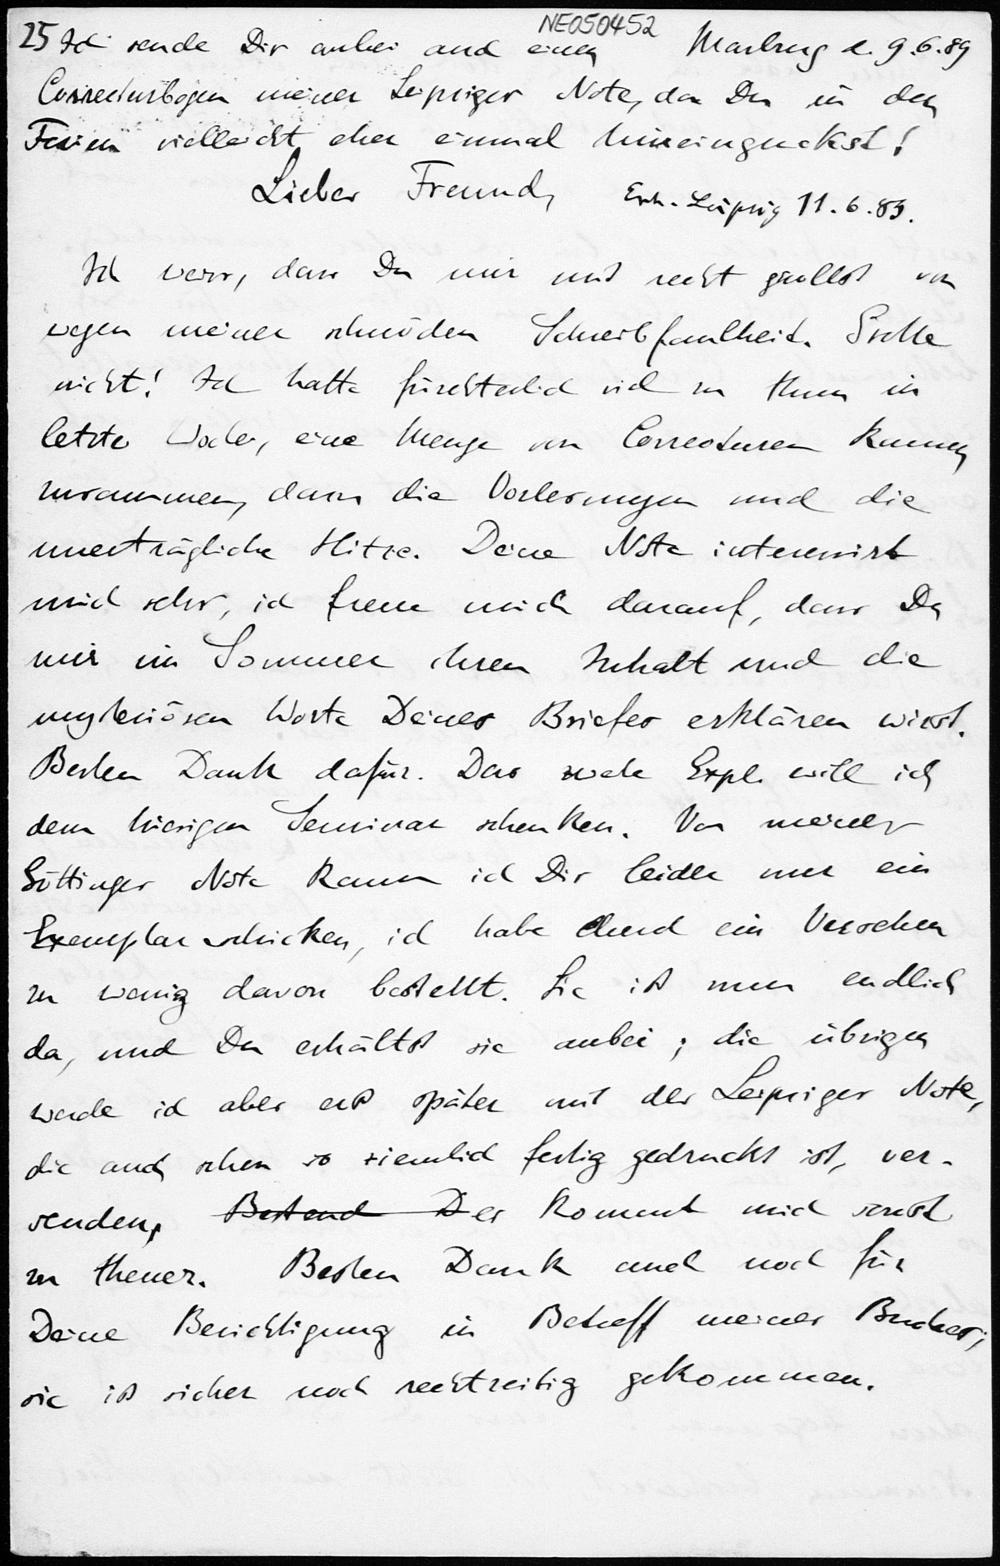 NE050452
25 Ich sende Dir anbei auch einen Marburg d. 9.6.89
Correcturbogen meiner Leipziger Note, da Du in den
Ferien vielleicht eher einmal hineinguckst!
Lieber Freund, Erh. Leipzig 11.6.89.
Ich weiss, dass Du mir mit recht grollst von
wegen meiner schnöden Schreibfaulheit. Grolle
nicht! Ich hatte fürchterlich viel zu thun in
letzter Woche, eine Menge von Correcturen kamen
zusammen, dazu die Vorlesungen und die
unerträgliche Hitze. Deine Note interessirt
mich sehr, ich freue mich darauf, dass Du
mir im Sommer ihren Inhalt und die
mysteriösen Worte Deines Briefes erklären wirst.
Besten Dank dafür. Das zweite Expl. will ich
dem hiesigen Seminar schenken. Von meiner
Göttinger Note kann ich Dir leider nur ein
Exemplar schicken, ich habe durch ein Versehen
zu wenig davon bestellt. Sie ist nun endlich
da, und Du erhältst sie anbei; die übrigen
werde ich aber erst später mit der Leipziger Note,
die auch schon so ziemlich fertig gedruckt ist, ver-
senden, es kommt mich sonst
zu theuer. Besten Dank auch noch für
Deine Berichtigung in Betreff meines Buches;
sie ist sicher noch rechtzeitig gekommen.